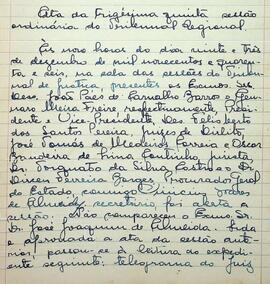 Ata da trigésima quinta sessão
ordinária do Tribunal Regional.
Às nove horas do dia vinte e três
de dezembro de mil novecentos e quaren-
ta e seis, na sala das sessões do Tribunal
de Justiça, presentes os Exmos. Srs.
Des. João Paes de Carvalho Barros e
Freire, respectivamente Presi-
dente e Vice-Presidente, Des. Felisberto
dos Santos Pereira, juizes de Direito,
José Tomás de Medeiros Correia e Oscar
Bandeira de Lima Coutinho, jurista
Dr. Torquato da Silva Castro e Dr.
Ferreira Borges, Procurador Geral
do Estado, comigo Soares
de Almeida, secretário, foi aberta a
sessão. Não compareceu o Exmo. Sr.
Dr. José Joaquim de Almeida. Lida
e aprovada a ata da sessão ante-
rior, passou-se à leitura do expe-
diente seguinte: telegrama do Juiz